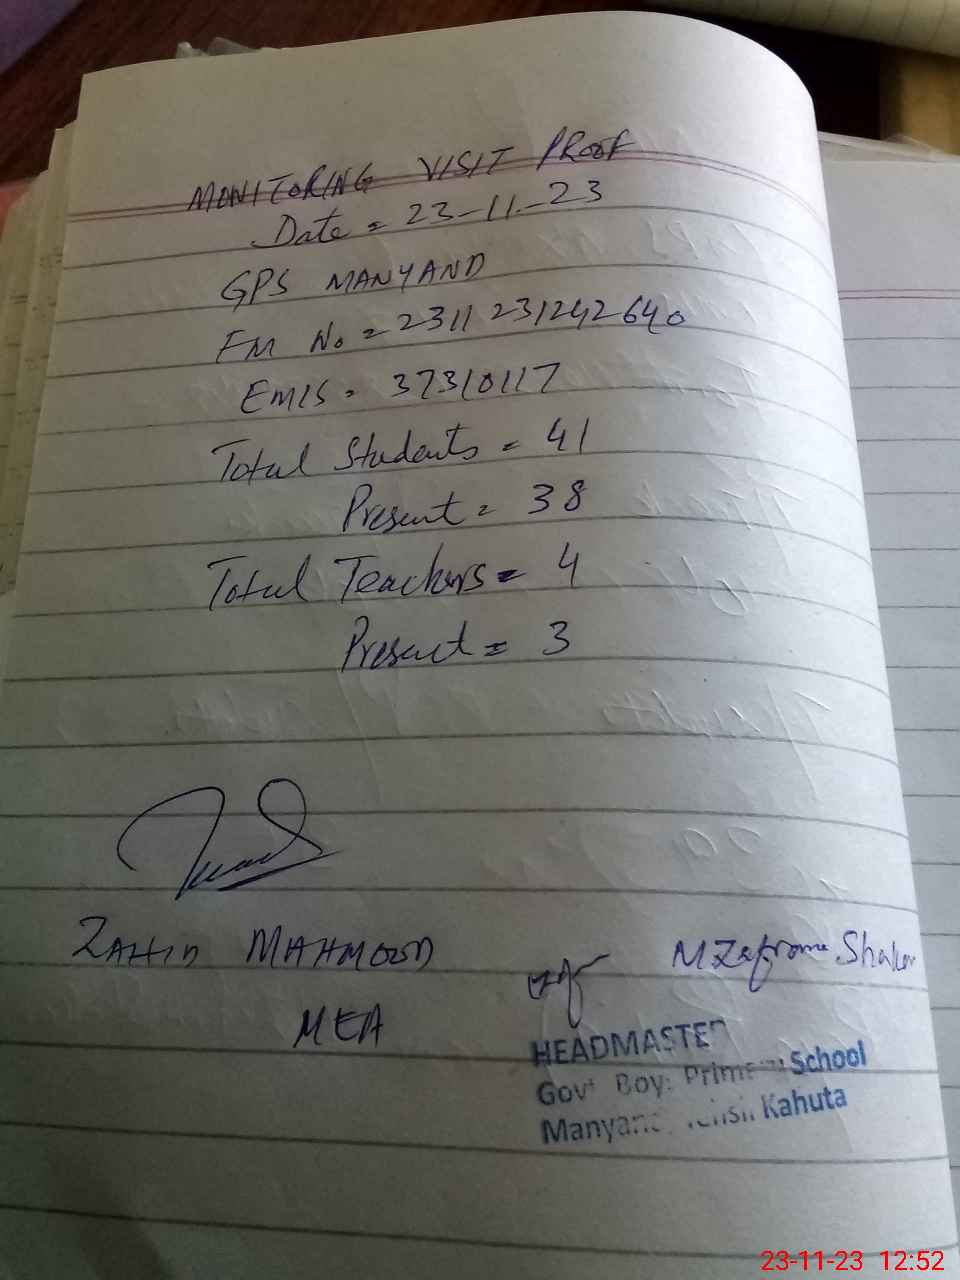 MONITORING VISIT PROOF
Date = 23-11-23
GPS MANYAND
FM No = 2311231242640
EMIS = 37310117
Total Students = 41
Present = 38
Total Teachers = 4
Present = 3
ZAHID MAHMOOD
MEA
HEADMASTER
Govt Boys Primary School
Kahuta
23-11-23 12:52